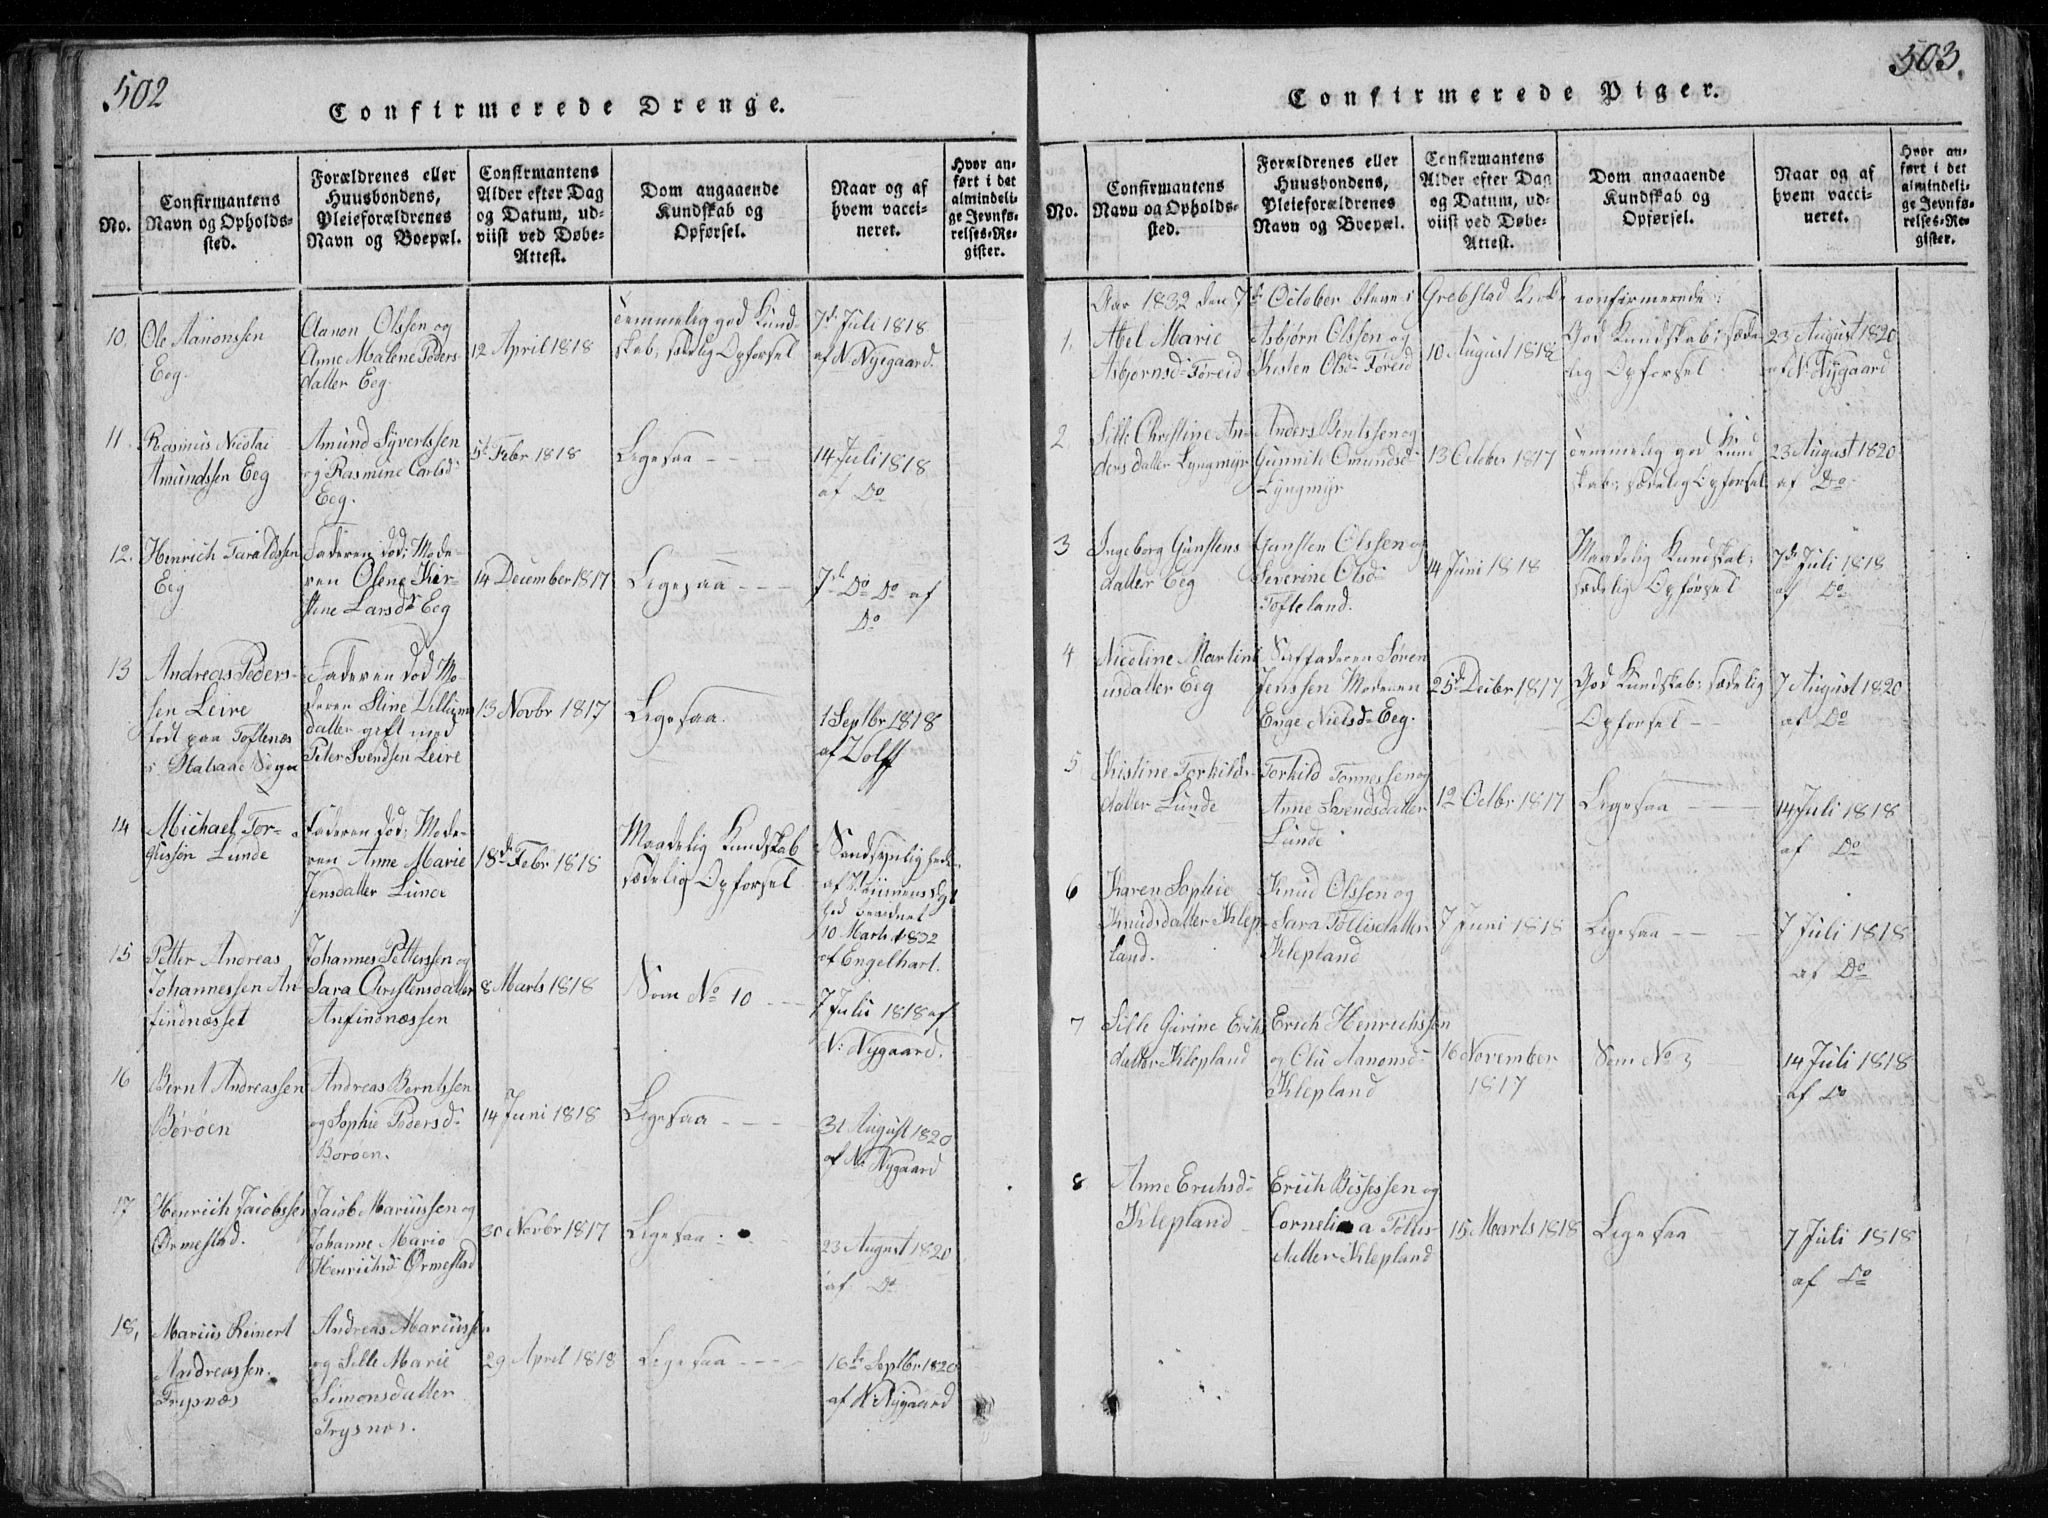 502
Confirmerede Drenge.
No.
Confirmantens
Navn og Opholds-
sted.
Forældrenes eller
Huusbondens,
Pleieforældrenes
Navn og Boepæl.
Confirmantens
Alder efter Dag
og Datum, ud-
viist ved Døbe-
Attest.
Dom angaaende
Kundskab og
Opførsel.
Naar og af
hvem vacci-
neret.
Hvor an-
ført i det
almindeli-
ge Jevnfø-
relses-Re-
gister.
10.
Ole Aanonssen
Eeg.
Aanon Olssen og
Anne Malene Peders-
datter Eeg.
12 April 1818
Temmelig god Kund-
skab; sædelig Opførsel
7de Juli 1818
af N. Nyegaard.
11.
Rasmus Nicolai
Amundssen Eeg
Amund Syvertssen
og Rasmine Carlsd
Eeg.
5te Febr 1818
Ligesaa
14 Juli 1818
af Do
12.
Henrich Taraldssen
Eeg
Faderen død; Mode-
ren Olene Kir-
stine Larsdr Eeg
14 December 1817
Ligesaa
7de Do Do af
Do
13
Andreas Peders-
sen Leire
født paa Toftenæs
i Halsaae Sogn
Faderen død Mo-
deren Stine Villums
datter gift med
Peter Svendsen Leire
13 Novbr 1817
Ligesaa.
1 Septbr 1818
af Wolff
14
Michael Tor-
gussøn Lunde
Faderen død; Mode-
ren Anne Marie
Jensdatter Lunde
18de Febr 1818
Maadelig Kundskab
sædelig Opførsel
Sandsynlighede
af
hed bevidnet
10 Marts 1832
af Engelhart.
15
Petter Andreas
Johannessen An-
findnæsset
Johannes Petterssen og
Sara Christensdatter
Anfindnæssen
8 Marts 1818
Som No 10
7 Juli 1818 af
N: Nygaard.
16
Bernt Andreassen
Børøen
Andreas Berntssen
og Sophie Pedersd
Børøen.
14 Juni 1818
Ligesaa
31 August 1820
af N: Nygaard
17
Henrich Jacobssen
Ørmestad.
Jacob Mariussen og
Johanne Marie
Henrichsd Ørmestad
30 Novbr 1817
Ligesaa
23 August 1820
af Do
18.
Marius Reinert
Andreassen.
Trysnæs
Andreas Mariussen
og Sille Marie
Simonsdatter
Trysnæs.
29 April 1818
Ligesaa
16de Septbr 1820
af N: Nygaard
503.
Confirmerede Piger.
No.
Confirmantens
Navn og Opholds-
sted.
Forældrenes eller
Huusbondens,
Pleieforældrenes
Navn og Boepæl.
Confirmantens
Alder efter Dag
og Datum, ud-
viist ved Døbe-
Attest.
Dom angaaende
Kundskab og
Opførsel.
Naar og af
hvem vacci-
neret.
Hvor an-
ført i det
almindeli-
ge Jevnfø-
relses-Re-
gister.
Aar 1832 den 7de October bleve i Grebstad Kirke confirmerede:
1.
Abel Marie
Asbjørnsd Føreid
Asbjørn Olssen og
Kisten Olsd Føreid
10 August 1818
God Kundskab; sæde-
lig Opførsel
23 August 1820
af N: Nygaard
2
Sille Christine An-
ders datter Lyngmyr
Anders Bentssen og
Gunnile Omundsd
Lyngmyr
13 October 1817
Temmelig god Kund
skab; sædelig Opførsel
23 August 1820
af Do
3
Ingeborg Gunstens
datter Eeg
Gunsten Olssen og
Severine Olsd
Tofteland.
14 Juni 1818
Maadelig Kundskab;
sædelig Opførsel
7de Juli 1818
af Do
4
Nicoline Martini
usdatter Eeg
Stiffaderen Søren
Jenssen Moderen
Enge Nielsd Eeg.
25de Decbr 1817
God Kundskab; sædelig
Opførsel
7 August 1820
af Do
5
Kistine Torkilds-
datter Lunde
Torkild Tønnessen og
Anne Svendsdatter
Lunde
12 Octbr 1817
Ligesaa
14 Juli 1818
af Do
6
Karen Sophie
Knudsdatter Klep-
land.
Knud Olssen og
Sara Tollisdatter
Klepland
7 Juni 1818
Ligesaa
7 Juli 1818
af Do
7
Sille Gurine Erichs
datter Klepland
Erich Henrichssen
og Olu Aanonsd
Klepland
16 November
1817
Som No 3
14 Juli 1818
af Do
8
Anne Erichsd
Klepland
Erich Bissessen og
Cornelia Tollis-
datter Klepland
15 Marts 1818
Ligesaa
7 Juli 1818
af Do